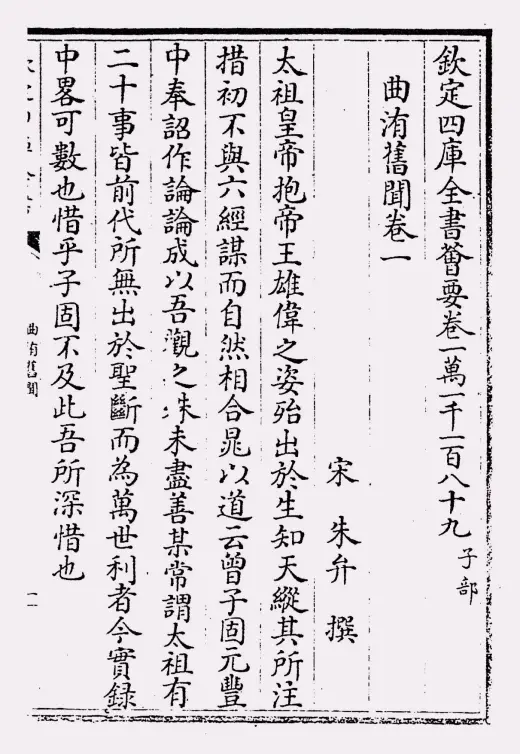 欽定四庫全書薈要卷一萬一千一百八十九 子部
曲洧舊聞卷一
宋 朱弁 撰
太祖皇帝抱帝王雄偉之姿殆出於生知天縱其所注
措初不與六經謀而自然相合晁以道云曾子固元豐
中奉詔作論論成以吾觀之殊未盡善某常謂太祖有
二十事皆前代所無出於聖斷而為萬世利者今實録
中畧可數也惜乎子固不及此吾所深惜也
曲洧舊聞
一